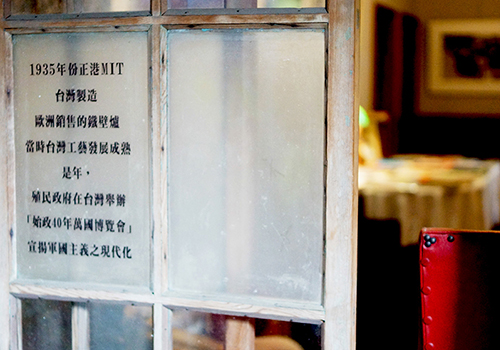 1935年份正港MIT
台灣製造
歐洲銷售的鐵壁爐
當時台灣工藝發展成熟
是年，
殖民政府在台灣舉辦
「始政40年萬國博覽會」
宣揚軍國主義之現代化